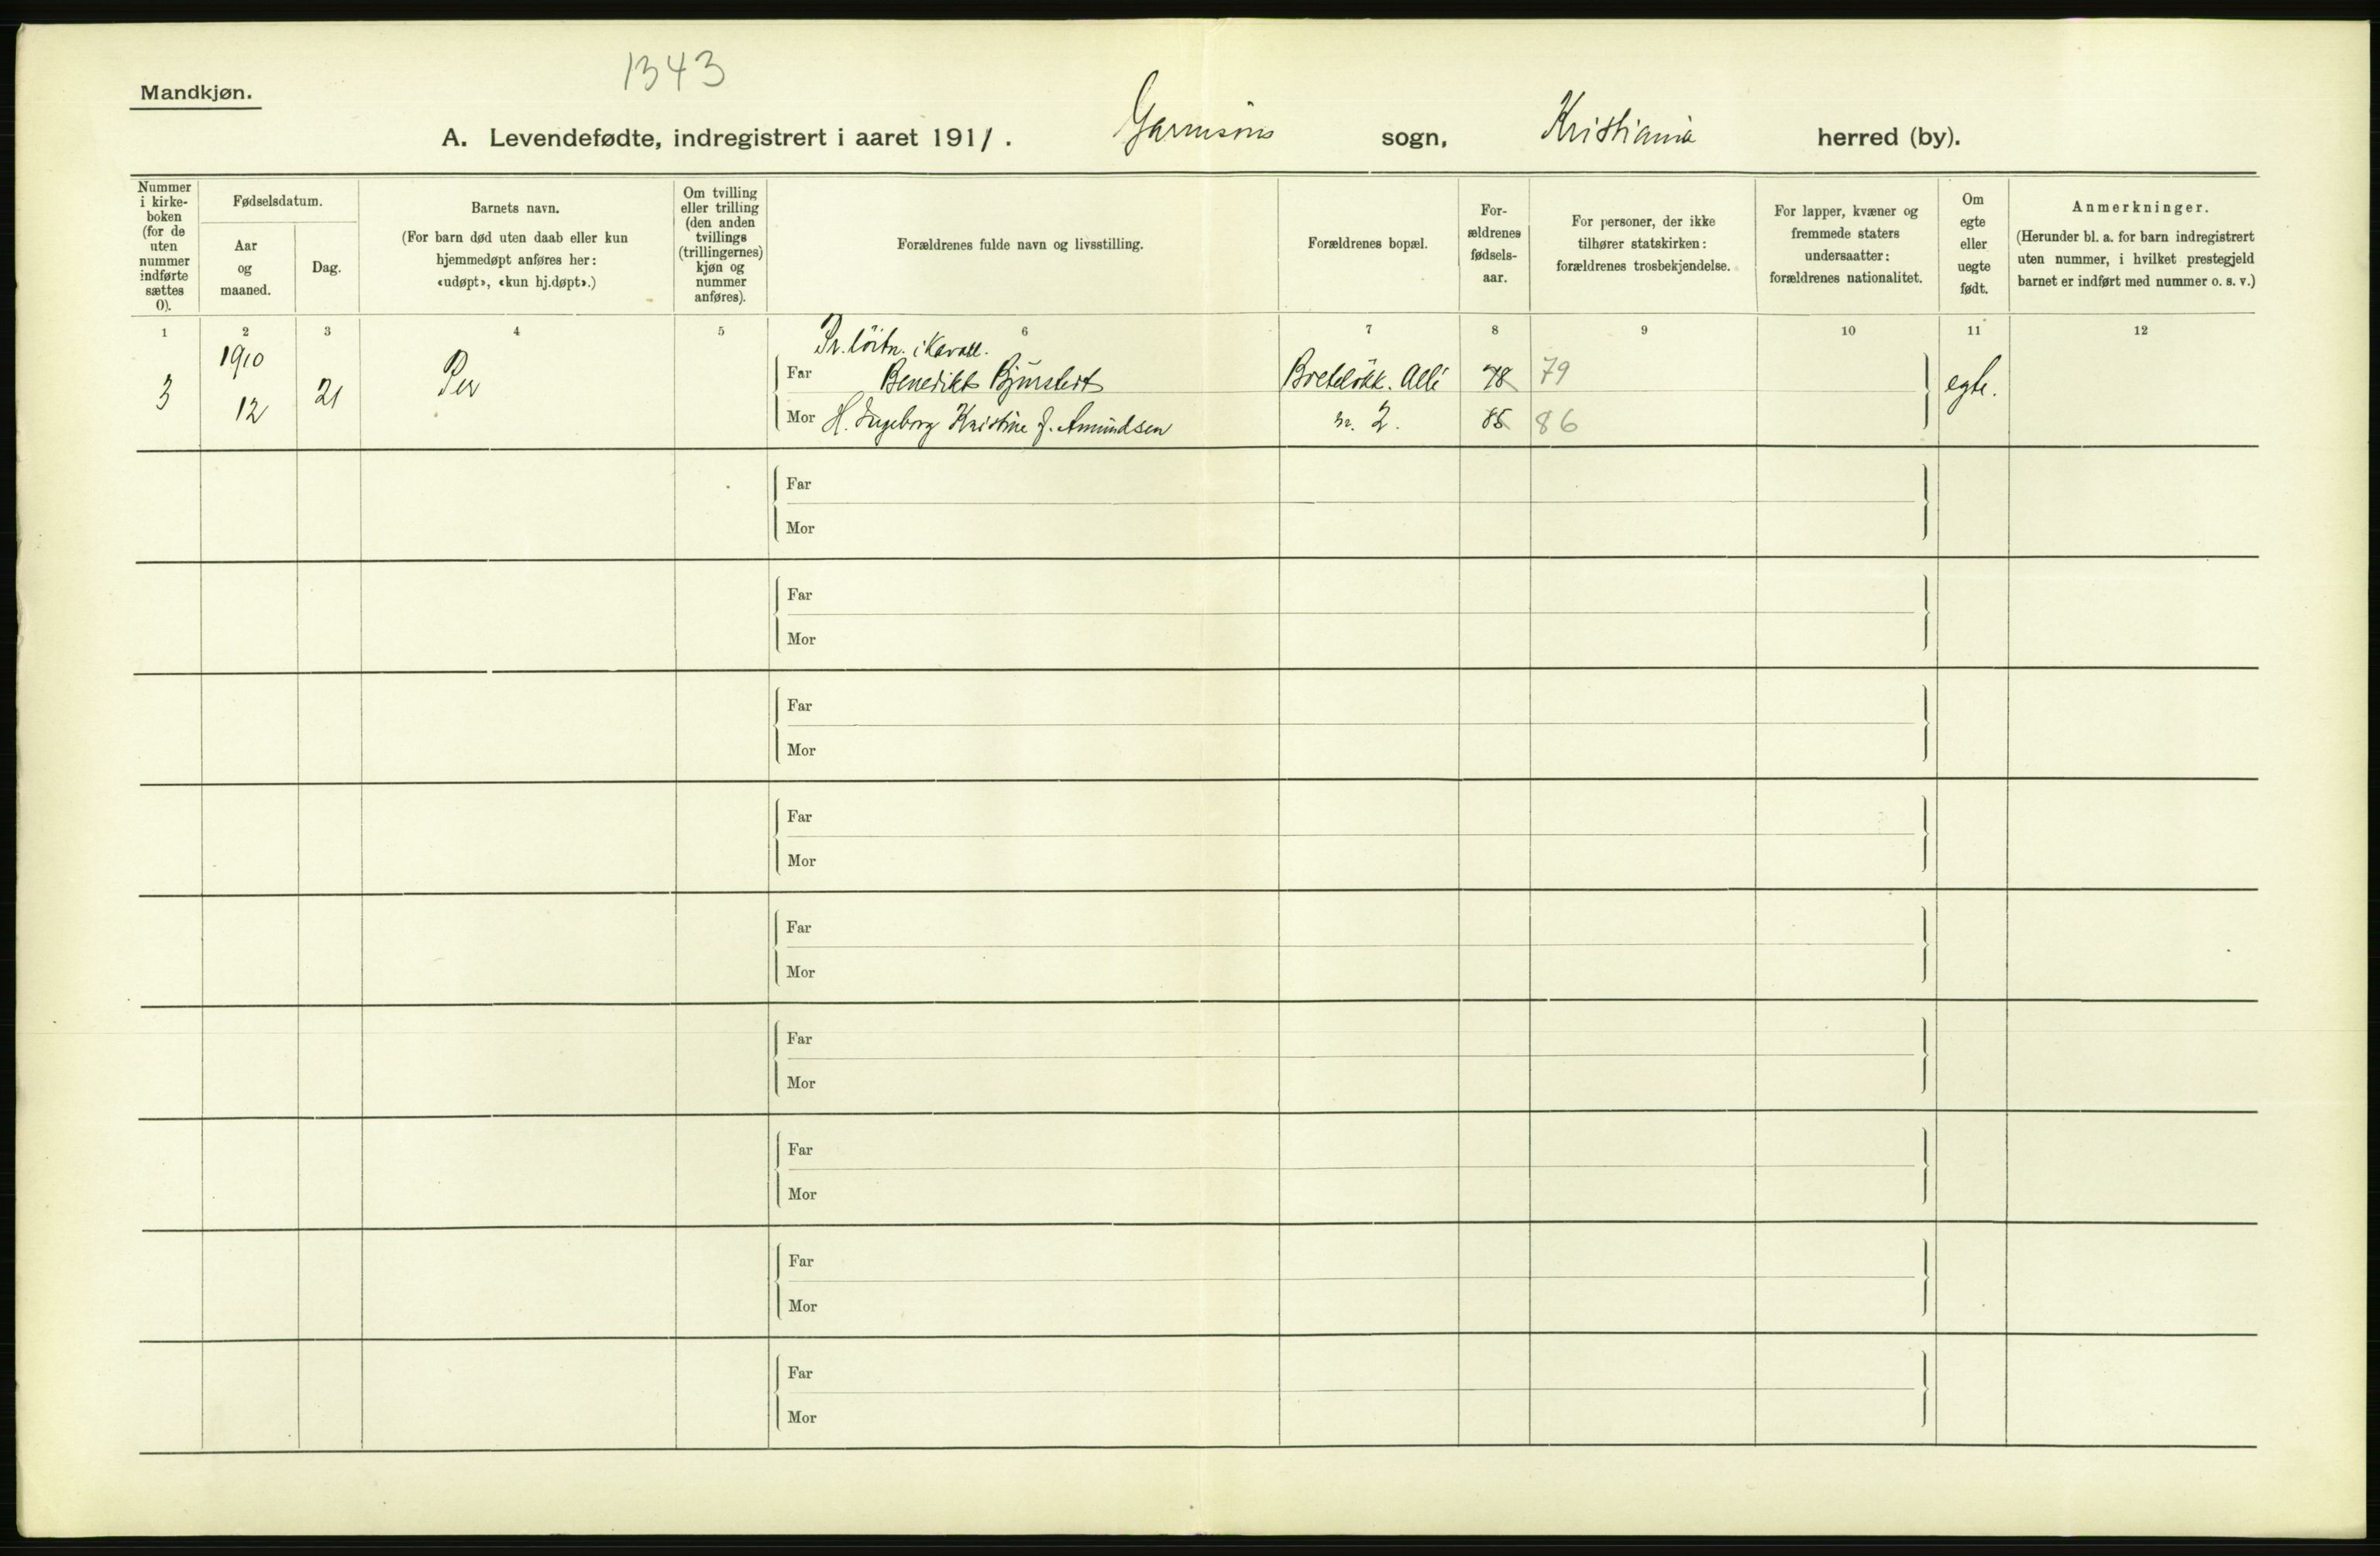 1343
Mandkjøn.
A. Levendefødte, indregistrert i aaret 1911. Garnisons sogn, Kristiania herred (by).
Nummer i kirke-boken (for de uten nummer indførte sættes 0).
Fødselsdatum.
Aar og maaned.
Dag.
Barnets navn.
(For barn død uten daab eller kun hjemmedøpt anføres her: «udøpt», «kun hj.døpt».)
Om tvilling eller trilling (den anden tvillings (trillingernes) kjøn og nummer anføres).
Forældrenes fulde navn og livsstilling.
Forældrenes bopæl.
For-ældrenes fødsels-aar.
For personer, der ikke tilhører statskirken: forældrenes trosbekjendelse.
For lapper, kvæner og fremmede staters undersaatter: forældrenes nationalitet.
Om egte eller uegte født.
Anmerkninger.
(Herunder bl. a. for barn indregistrert uten nummer, i hvilket prestegjeld barnet er indført med nummer o. s. v.)
1 2 3 4 5 6 7 8 9 10 11 12
Pr. löitn. i Kavall.
3 1910 12 21 Per
Far Benedikt 78 79 egte.
Mor H. Ingeborg Kristine f. Amundsen nr. 2. 85 86
Far
Mor
Far
Mor
Far
Mor
Far
Mor
Far
Mor
Far
Mor
Far
Mor
Far
Mor
Far
Mor